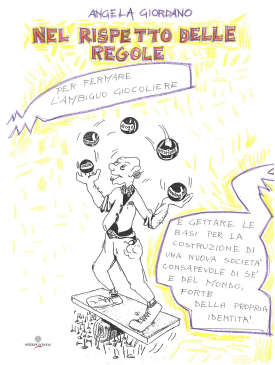 ANGELA GIORDANO
NEL RISPETTO DELLE
REGOLE
PER FERMARE
L'AMBIGUO GIOCOLIERE
E GETTARE LE
BASI PER LA
COSTRUZIONE DI
UNA NUOVA SOCIETA'
CONSAPEVOLE DI SE'
E DEL MONDO,
FORTE
DELLA PROPRIA
IDENTITA'